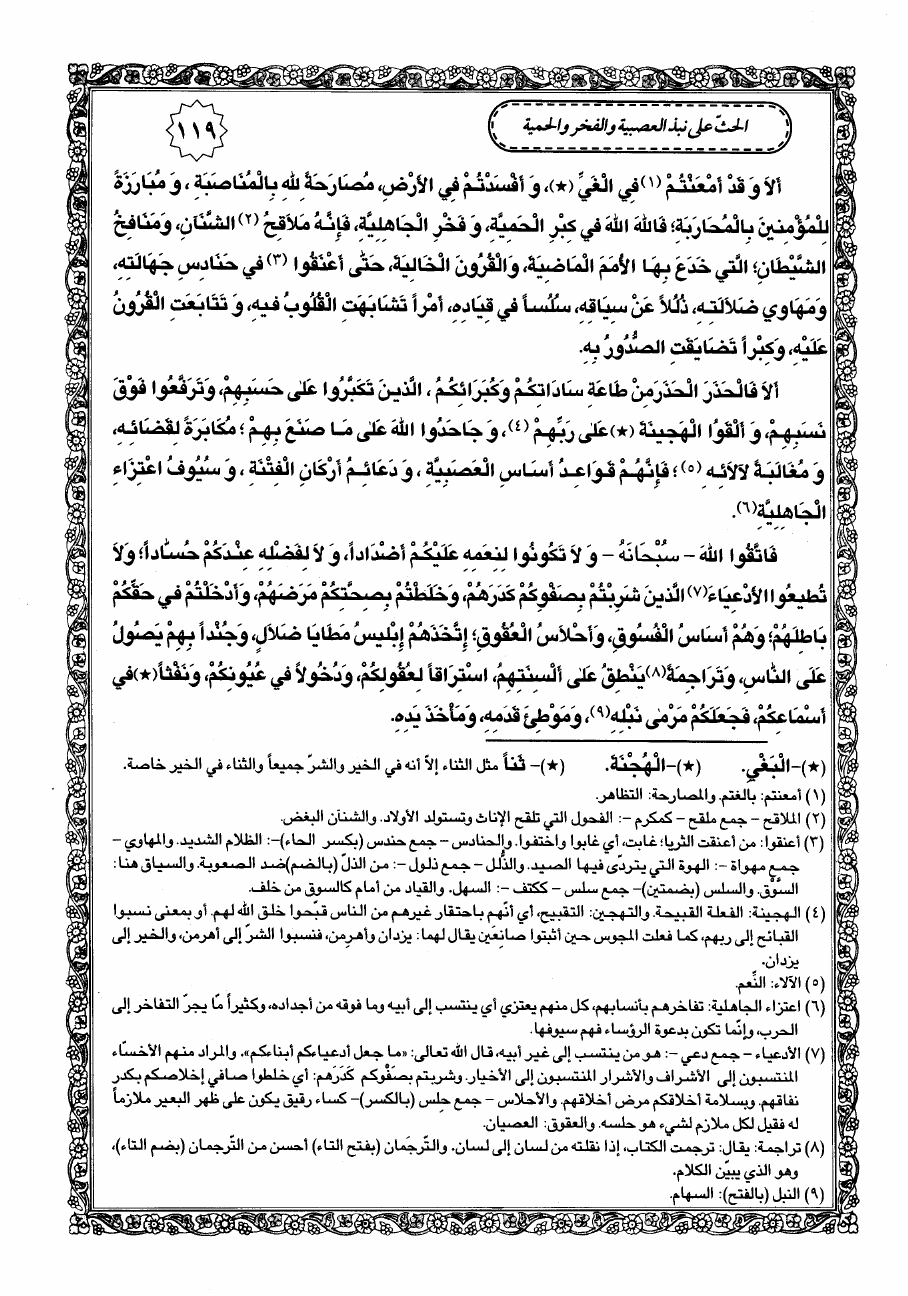 الحثّ على نبذ العصبية والفخر والحمية
١١٩
ألاَ وَ قَدْ أمْعَنْتُمْ (١) فِي الْغَيِّ (★)، وَ أفْسَدْتُمْ فِي الأرْضِ، مُصَارَحَةً للهِ بِالْمُنَاصَبَةِ ، وَ مُبَارَزَةً
لِلْمُؤْمِنِينَ بِالْمُحَارَبَةِ؛ فَاللهَ اللهَ في كِبْرِ الْحَمِيَّةِ، وَ فَخْرِ الْجَاهِلِيَّةِ، فَإِنَّهُ مَلاَقِحُ (٢) الشَّنَآنِ، وَمَنَافِخُ
الشَّيْطَانِ؛ الَّتي خَدَعَ بِهَا الأُمَمَ الْمَاضِيَةَ، وَالْقُرُونَ الْخَالِيَةَ، حَتَّى أعْنَقُوا (٣) في حَنَادِسِ جَهَالَتِهِ،
وَمَهَاوِي ضَلاَلَتِهِ، ذُلُلاً عَنْ سِيَاقِهِ، سُلُساً في قِيَادِهِ، أمْراً تَشَابَهَتِ الْقُلُوبُ فيهِ، وَ تَتَابَعَتِ الْقُرُونُ
عَلَيْهِ، وَكِبْراً تَضَايَقَتِ الصُّدُورُ بِهِ.
ألاَ فَالْحَذَرَ الْحَذَرَمِنْ طَاعَةِ سَادَاتِكُمْ وَكُبَرَائِكُمُ ، الَّذينَ تَكَبَّرُوا عَلى حَسَبِهِمْ، وَتَرَفَّعُوا فَوْقَ
نَسَبِهِمْ، وَ ألْقَوُا الْهَجِينَةَ (★)عَلى رَبِّهِمْ (٤)، وَ جَاحَدُوا اللهَ عَلى مَا صَنَعَ بِهِمْ ؛ مُكَابَرَةً لِقَضَائِهِ،
وَ مُغَالَبَةً لآلاَئِهِ (٥)؛ فَإِنَّهُمْ قَوَاعِدُ أسَاسِ الْعَصَبِيَّةِ ، وَ دَعَائِمُ أرْكَانِ الْفِتْنَةِ ، وَ سُيُوفُ اعْتِزَاءِ
الْجَاهِلِيَّةِ (٦).
فَاتَّقُوا اللهَ – سُبْحَانَهُ – وَ لاَ تَكُونُوا لِنِعَمِهِ عَلَيْكُمْ أضْدَاداً، وَ لاَ لِفَضْلِهِ عِنْدَكُمْ حُسَّاداً؛ وَلاَ
تُطيعُوا الأدْعِيَاءَ (٧) الَّذينَ شَرِبْتُمْ بِصَفْوِكُمْ كَدَرَهُمْ، وَخَلَطْتُمْ بِصِحَّتِكُمْ مَرَضَهُمْ، وَأدْخَلْتُمْ في حَقِّكُمْ
بَاطِلَهُمْ؛ وَهُمْ أسَاسُ الْفُسُوقِ، وَأحْلاَسُ الْعُقُوقِ؛ إتَّخَذَهُمْ إبْليسُ مَطَايَا ضَلاَلٍ، وَجُنْداً بِهِمْ يَصُولُ
عَلَى النَّاسِ، وَتَرَاجِمَةً (٨) يَنْطِقُ عَلى ألْسِنَتِهِمُ، اسْتِرَاقاً لِعُقُولِكُمْ، وَدُخُولاً في عُيُونِكُمْ، وَنَفْثاً (★)في
أسْمَاعِكُمْ، فَجَعَلَكُمْ مَرْمى نَبْلِهِ (٩)، وَمَوْطِئَ قَدَمِهِ، وَمَأْخَذَ يَدِهِ.
(★)–الْبَغْيِ. (★)–الْهُجْنَةَ. (★)– نَثاً مثل الثناء إلاّ أنه في الخير والشرّ جميعاً والثناء في الخير خاصة.
(١) أمعنتم: بالغتم. والمصارحة: التظاهر.
(٢) الملاقح – جمع ملقح – كمكرم –: الفحول التي تلقح الإناث وتستولد الأولاد. والشنآن البغض.
(٣) أعنقوا: من أعنقت الثريا؛ غابت، أي غابوا واختفوا. والحنادس – جمع حندس (بكسر الحاء)–: الظلام الشديد. والمهاوي –
جمع مهواة –: الهوة التي يتردّى فيها الصيد. والذُّلُل – جمع ذلول –: من الذلّ (بالضم)ضد الصعوبة. والسياق هنا:
السَّوْق. والسلس (بضمتين)– جمع سلس – ككتف –: السهل. والقياد من أمام كالسوق من خلف.
(٤) الهجينة: الفعلة القبيحة. والتهجين: التقبيح، أي أنّهم باحتقار غيرهم من الناس قبّحوا خلق الله لهم. أو بمعنى نسبوا
القبائح إلى ربهم، كما فعلت المجوس حين أثبتوا صانعَين يقال لهما: يزدان وأهرمن، فنسبوا الشرّ إلى أهرمن، والخير إلى
يزدان.
(٥) الآلاء: النِّعم.
(٦) اعتزاء الجاهلية: تفاخرهم بأنسابهم، كل منهم يعتزي أي ينتسب إلى أبيه وما فوقه من أجداده، وكثيراً مّا يجرّ التفاخر إلى
الحرب، وإنّما تكون بدعوة الرؤساء فهم سيوفها.
(٧) الأدعياء – جمع دعي –: هو من ينتسب إلى غير أبيه، قال الله تعالى: «ما جعل أدعياءكم أبناءكم»، والمراد منهم الأخسّاء
المنتسبون إلى الأشراف والأشرار المنتسبون إلى الأخيار. وشربتم بصَفْوكم كَدَرَهم: أي خلطوا صافي إخلاصكم بكدر
نفاقهم. وبسلامة أخلاقكم مرض أخلاقهم. والأحلاس – جمع حِلس (بالكسر)– كساء رقيق يكون على ظهر البعير ملازماً
له فقيل لكل ملازم لشيء هو حلسه. والعقوق: العصيان.
(٨) تراجمة: يقال: ترجمت الكتاب، إذا نقلته من لسان إلى لسان. والتَّرجَمان (بفتح التاء) أحسن من التّرجمان (بضم التاء)،
وهو الذي يبيّن الكلام.
(٩) النبل (بالفتح): السهام.